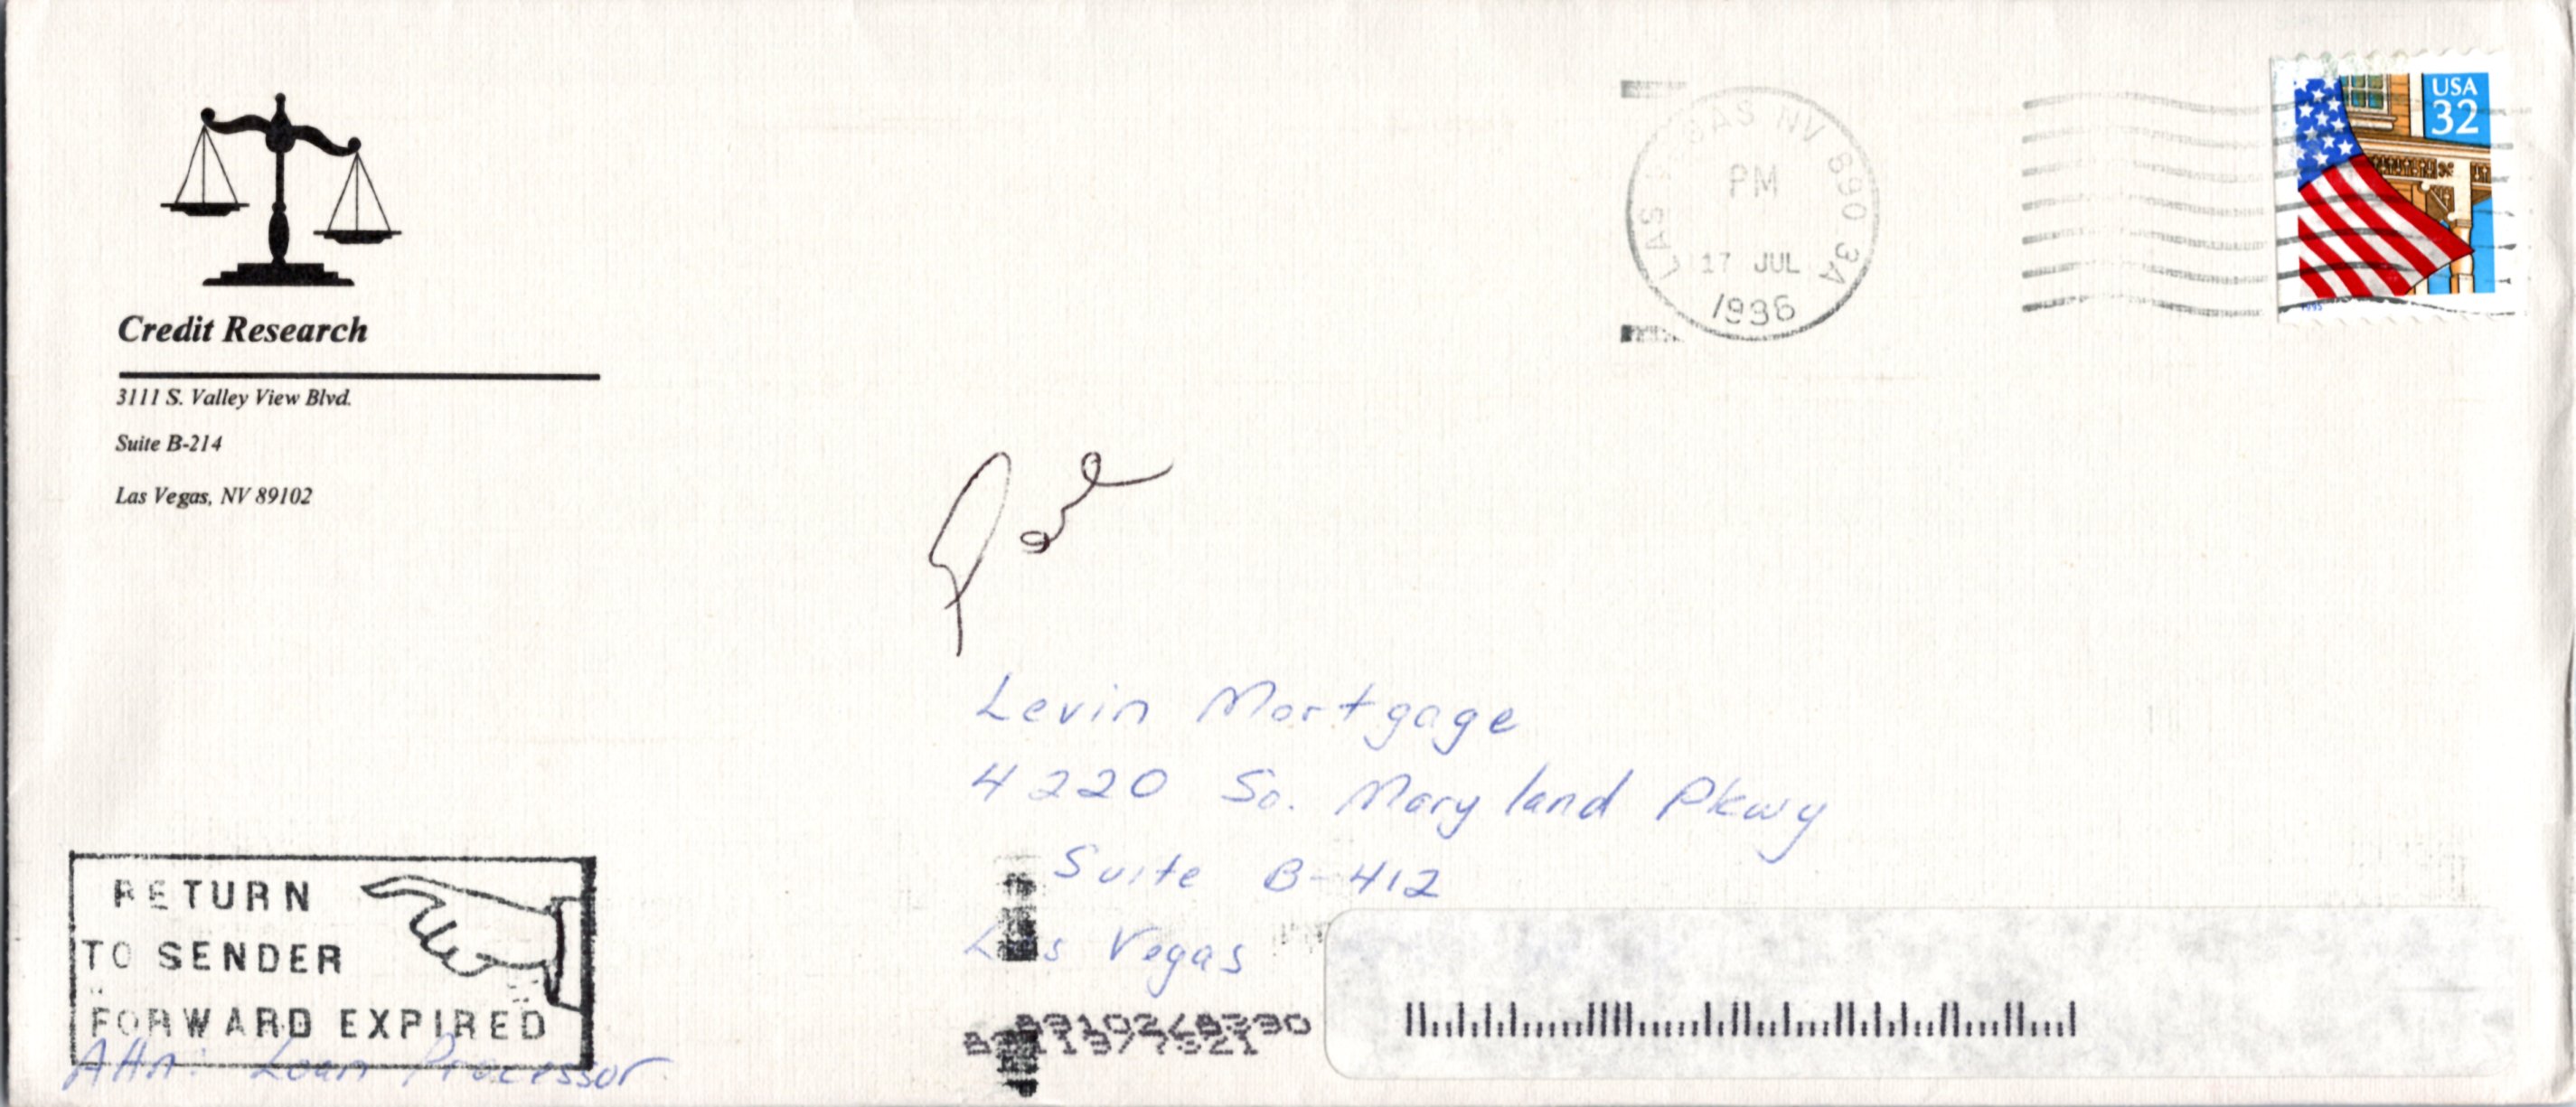 Credit Research
3111 S. Valley View Blvd.
Suite B-214
Las Vegas, NV 89102
LAS VEGAS NV 890 3A
PM
17 JUL
1996
USA
32
1995
Levin Mortgage
4220 So. Maryland Pkwy
Suite B-412
Las Vegas
RETURN
TO SENDER
FORWARD EXPIRED
Attn: Loan Processor